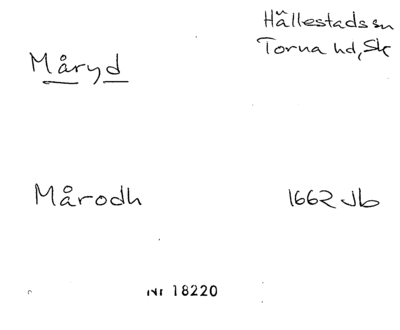 Hällestads sn
Torna hd, Sk
Måryd
Mårodh
1662 Jb
Nr 18220